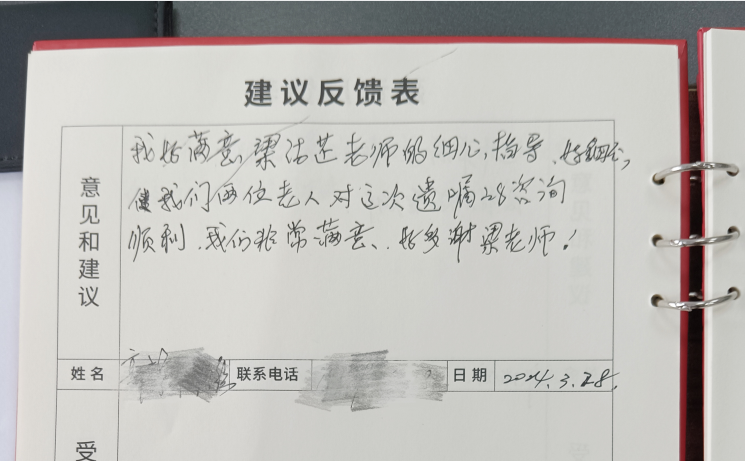 建议反馈表
意见和建议
我好满意梁洁莲老师的细心,指导、好细心,
使我们两位老人对这次遗嘱咨询
顺利、我们非常满意、好多谢梁老师!
姓名 联系电话 日期 2024.3.28.
受